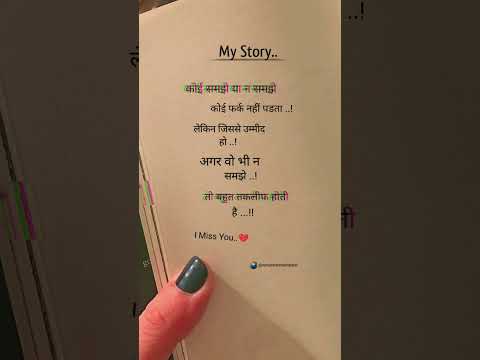 My Story..
कोई समझे या न समझे
कोई फर्क नहीं पडता ..!
लेकिन जिससे उम्मीद
हो ..!
अगर वो भी न
समझे ..!
तो बहुत तकलीफ होती
है ...!!
I Miss You..💔